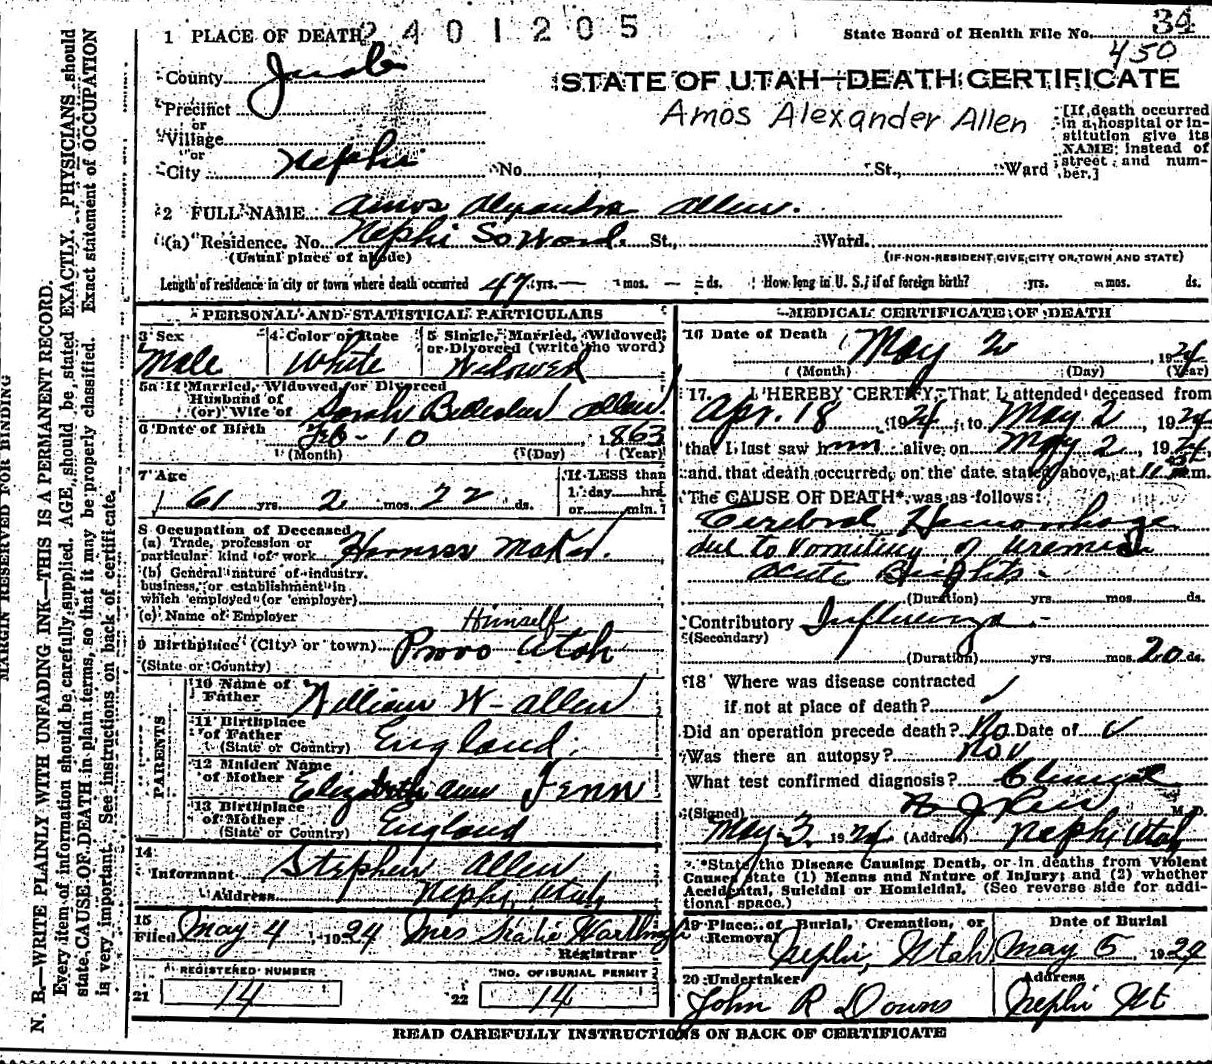 1 PLACE OF DEATH 2 4 0 1 2 0 5
State Board of Health File No. 34
450
County Juab
STATE OF UTAH—DEATH CERTIFICATE
Precinct
or
Village
or
City Nephi No. St., Ward
Amos Alexander Allen
[If death occurred
in a hospital or in-
stitution give its
NAME instead of
street and num-
ber.]
2 FULL NAME Amos Alexander Allen.
(a) Residence. No. Nephi So Ward. St., Ward.
(Usual place of abode) (IF NON-RESIDENT GIVE CITY OR TOWN AND STATE)
Length of residence in city or town where death occurred 47 yrs. — mos. — ds. How long in U. S. if of foreign birth? yrs. mos. ds.
PERSONAL AND STATISTICAL PARTICULARS
3 Sex
Male
4 Color or Race
White
5 Single, Married, Widowed,
or Divorced (write the word)
Widowed
5a If Married, Widowed, or Divorced
Husband of
(or) Wife of Sarah Allen.
6 Date of Birth Feb - 10 1863
(Month) (Day) (Year)
7 Age
61 yrs. 2 mos. 22 ds.
If LESS than
1 day hrs.
or min.
8 Occupation of Deceased
(a) Trade, profession or
particular kind of work Harness Maker.
(b) General nature of industry,
business, or establishment in
which employed (or employer)
(c) Name of Employer Himself
9 Birthplace (City or town) Provo Utah
(State or Country)
PARENTS
10 Name of
Father William W - Allen
11 Birthplace
of Father England.
(State or Country)
12 Maiden Name
of Mother Elizabeth Ann Fenn
13 Birthplace
of Mother England
(State or Country)
14
Informant Stephen Allen
Address Nephi, Utah
15
Filed May 4, 1924 Mrs
Registrar
REGISTERED NUMBER
21 14
NO. OF BURIAL PERMIT
22 14
MEDICAL CERTIFICATE OF DEATH
16 Date of Death May 2, 1924
(Month) (Day) (Year)
17. I HEREBY CERTIFY, That I attended deceased from
Apr. 18, 1924, to May 2, 1924
that I last saw him alive on May 2, 1924,
and that death occurred, on the date stated above, at 11 m.
The CAUSE OF DEATH* was as follows:
Cerebral Hemorrhage
due to Vomiting of Uremia
Acute Brights -
(Duration) yrs. mos. ds.
Contributory Influenza -
(Secondary)
(Duration) yrs. mos. 20 ds.
18 Where was disease contracted
if not at place of death?
Did an operation precede death? No Date of
Was there an autopsy? No
What test confirmed diagnosis? Clinical
(Signed) M.D.
May 3, 1924 (Address) Nephi, Utah
*State the Disease Causing Death, or in deaths from Violent
Causes, state (1) Means and Nature of Injury; and (2) whether
Accidental, Suicidal or Homicidal. (See reverse side for addi-
tional space.)
19 Place of Burial, Cremation, or
Removal
Nephi, Utah
Date of Burial
May 5, 1924
20 Undertaker
John R Downs
Address
Nephi Ut
READ CAREFULLY INSTRUCTIONS ON BACK OF CERTIFICATE
MARGIN RESERVED FOR BINDING
N. B.—WRITE PLAINLY WITH UNFADING INK—THIS IS A PERMANENT RECORD.
Every item of information should be carefully supplied. AGE should be stated EXACTLY. PHYSICIANS should
state CAUSE OF DEATH in plain terms, so that it may be properly classified. Exact statement of OCCUPATION
is very important. See instructions on back of certificate.